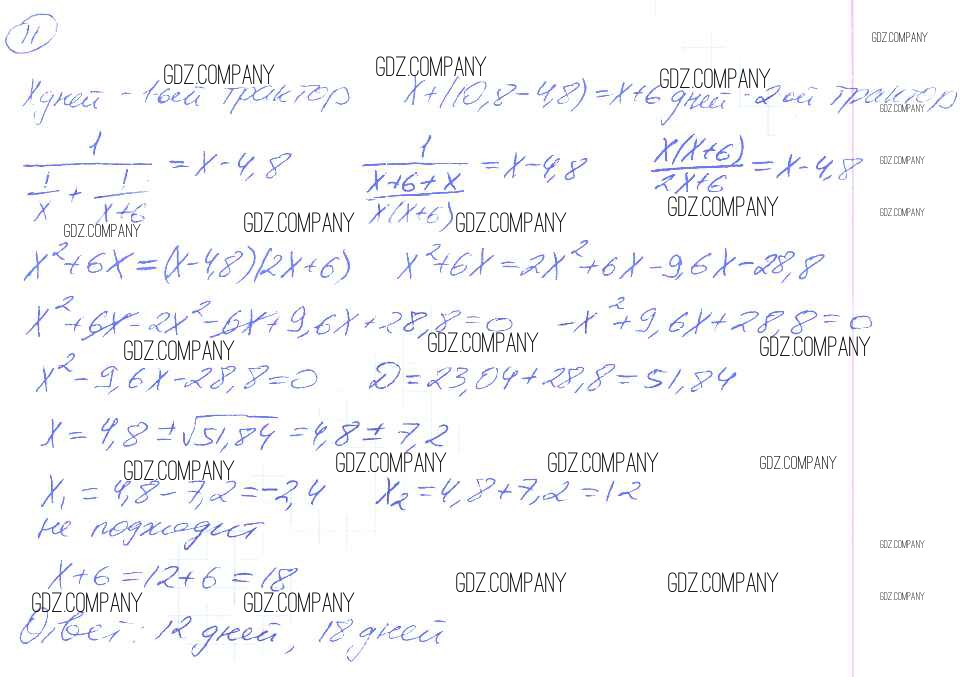 11
GDZ.COMPANY
GDZ.COMPANY GDZ.COMPANY GDZ.COMPANY
X дней - 1-ый трактор X+(10,8-4,8)=X+6 дней - 2-ой трактор
GDZ.COMPANY
1/(1/X + 1/(X+6)) = X-4,8 1/((X+6+X)/(X(X+6))) = X-4,8 X(X+6)/(2X+6) = X-4,8
GDZ.COMPANY
GDZ.COMPANY GDZ.COMPANY GDZ.COMPANY GDZ.COMPANY GDZ.COMPANY
X²+6X=(X-4,8)(2X+6) X²+6X=2X²+6X-9,6X-28,8
X²+6X-2X²-6X+9,6X+28,8=0 -X²+9,6X+28,8=0
GDZ.COMPANY GDZ.COMPANY GDZ.COMPANY
X²-9,6X-28,8=0 D=23,04+28,8=51,84
X=4,8±√51,84=4,8±7,2
GDZ.COMPANY GDZ.COMPANY GDZ.COMPANY GDZ.COMPANY
X₁=4,8-7,2=-2,4 X₂=4,8+7,2=12
не подходит
GDZ.COMPANY
X+6=12+6=18
GDZ.COMPANY GDZ.COMPANY
GDZ.COMPANY GDZ.COMPANY GDZ.COMPANY
Ответ: 12 дней, 18 дней